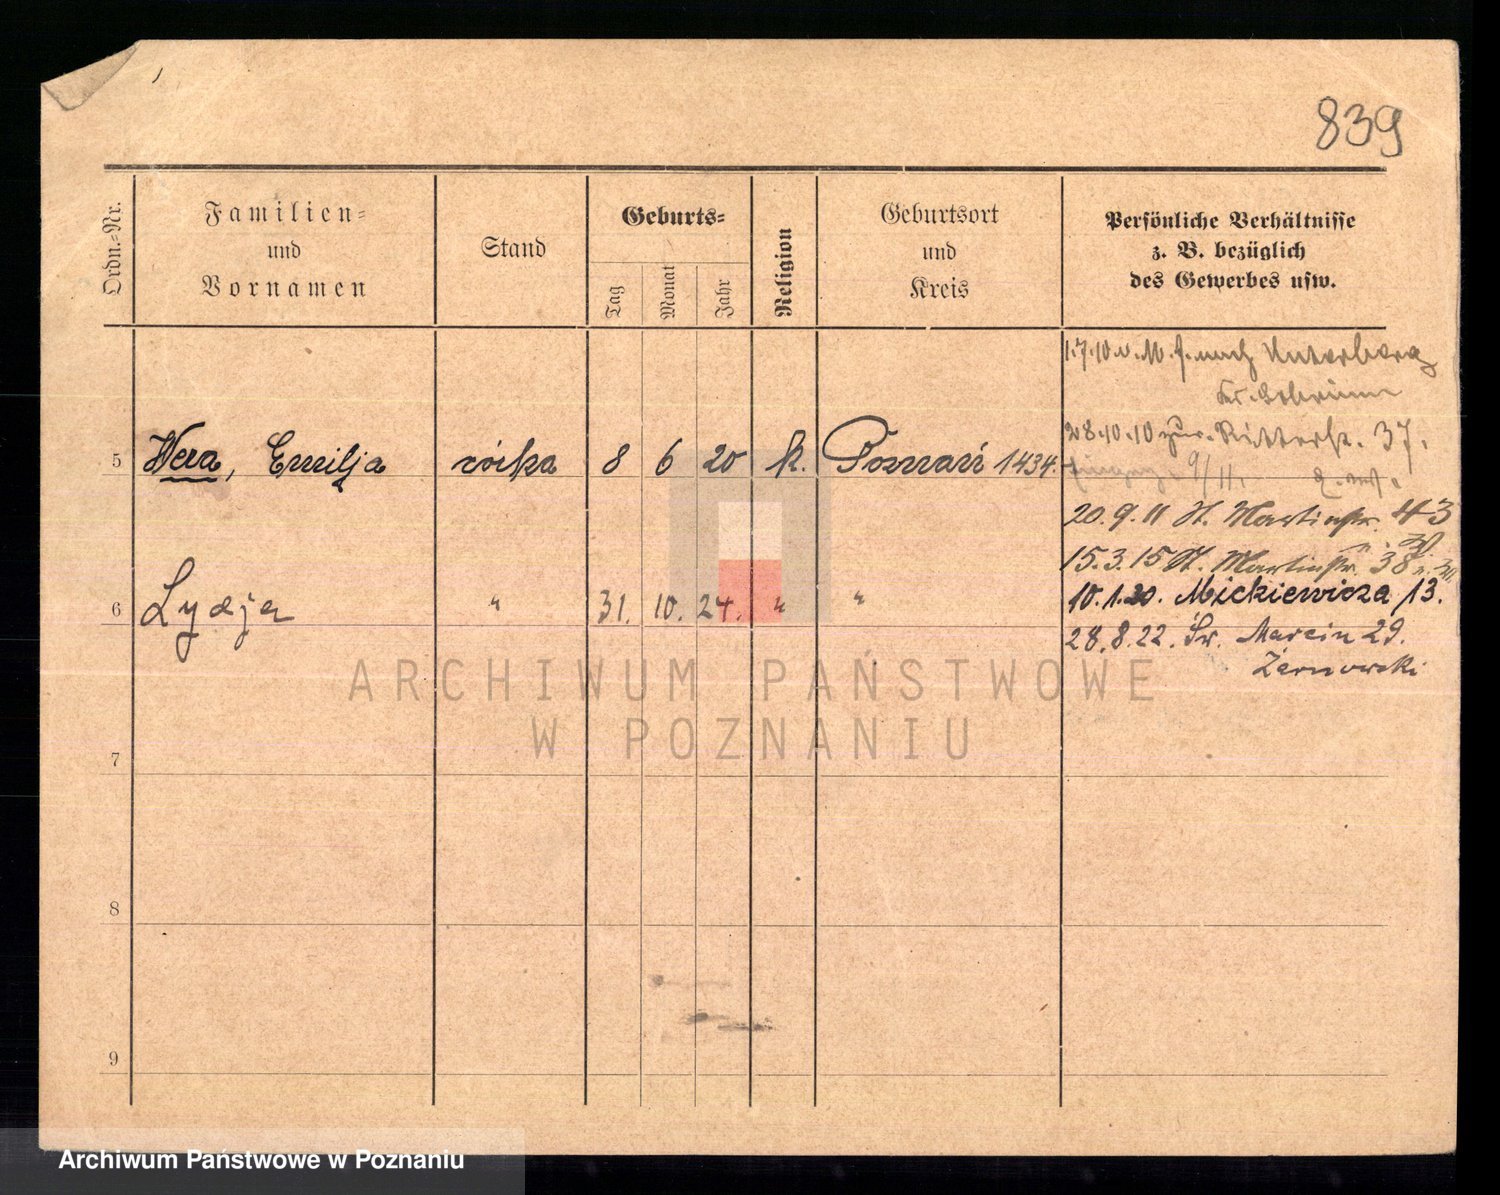 839
Ordn.-Nr.
Familien-
und
Vornamen
Stand
Geburts-
Tag
Monat
Jahr
Religion
Geburtsort
und
Kreis
Persönliche Verhältnisse
z. B. bezüglich
des Gewerbes usw.
1.7.10 v. M. f. nach Unterberg
28.10.10 zur. Ritterstr. 37.
5 Wera, Emilja córka 8 6 20 k. Poznań 1434.
9/11.
20.9.11 St. Martinstr. 43
15.3.15 St. Martinstr. 38
6 Lydja " 31. 10. 24. " "
10.1.20. Mickiewicza 13.
28.8.22. Św. Marcin 29.
Żarnowski
ARCHIWUM PAŃSTWOWE
W POZNANIU
7
8
9
Archiwum Państwowe w Poznaniu